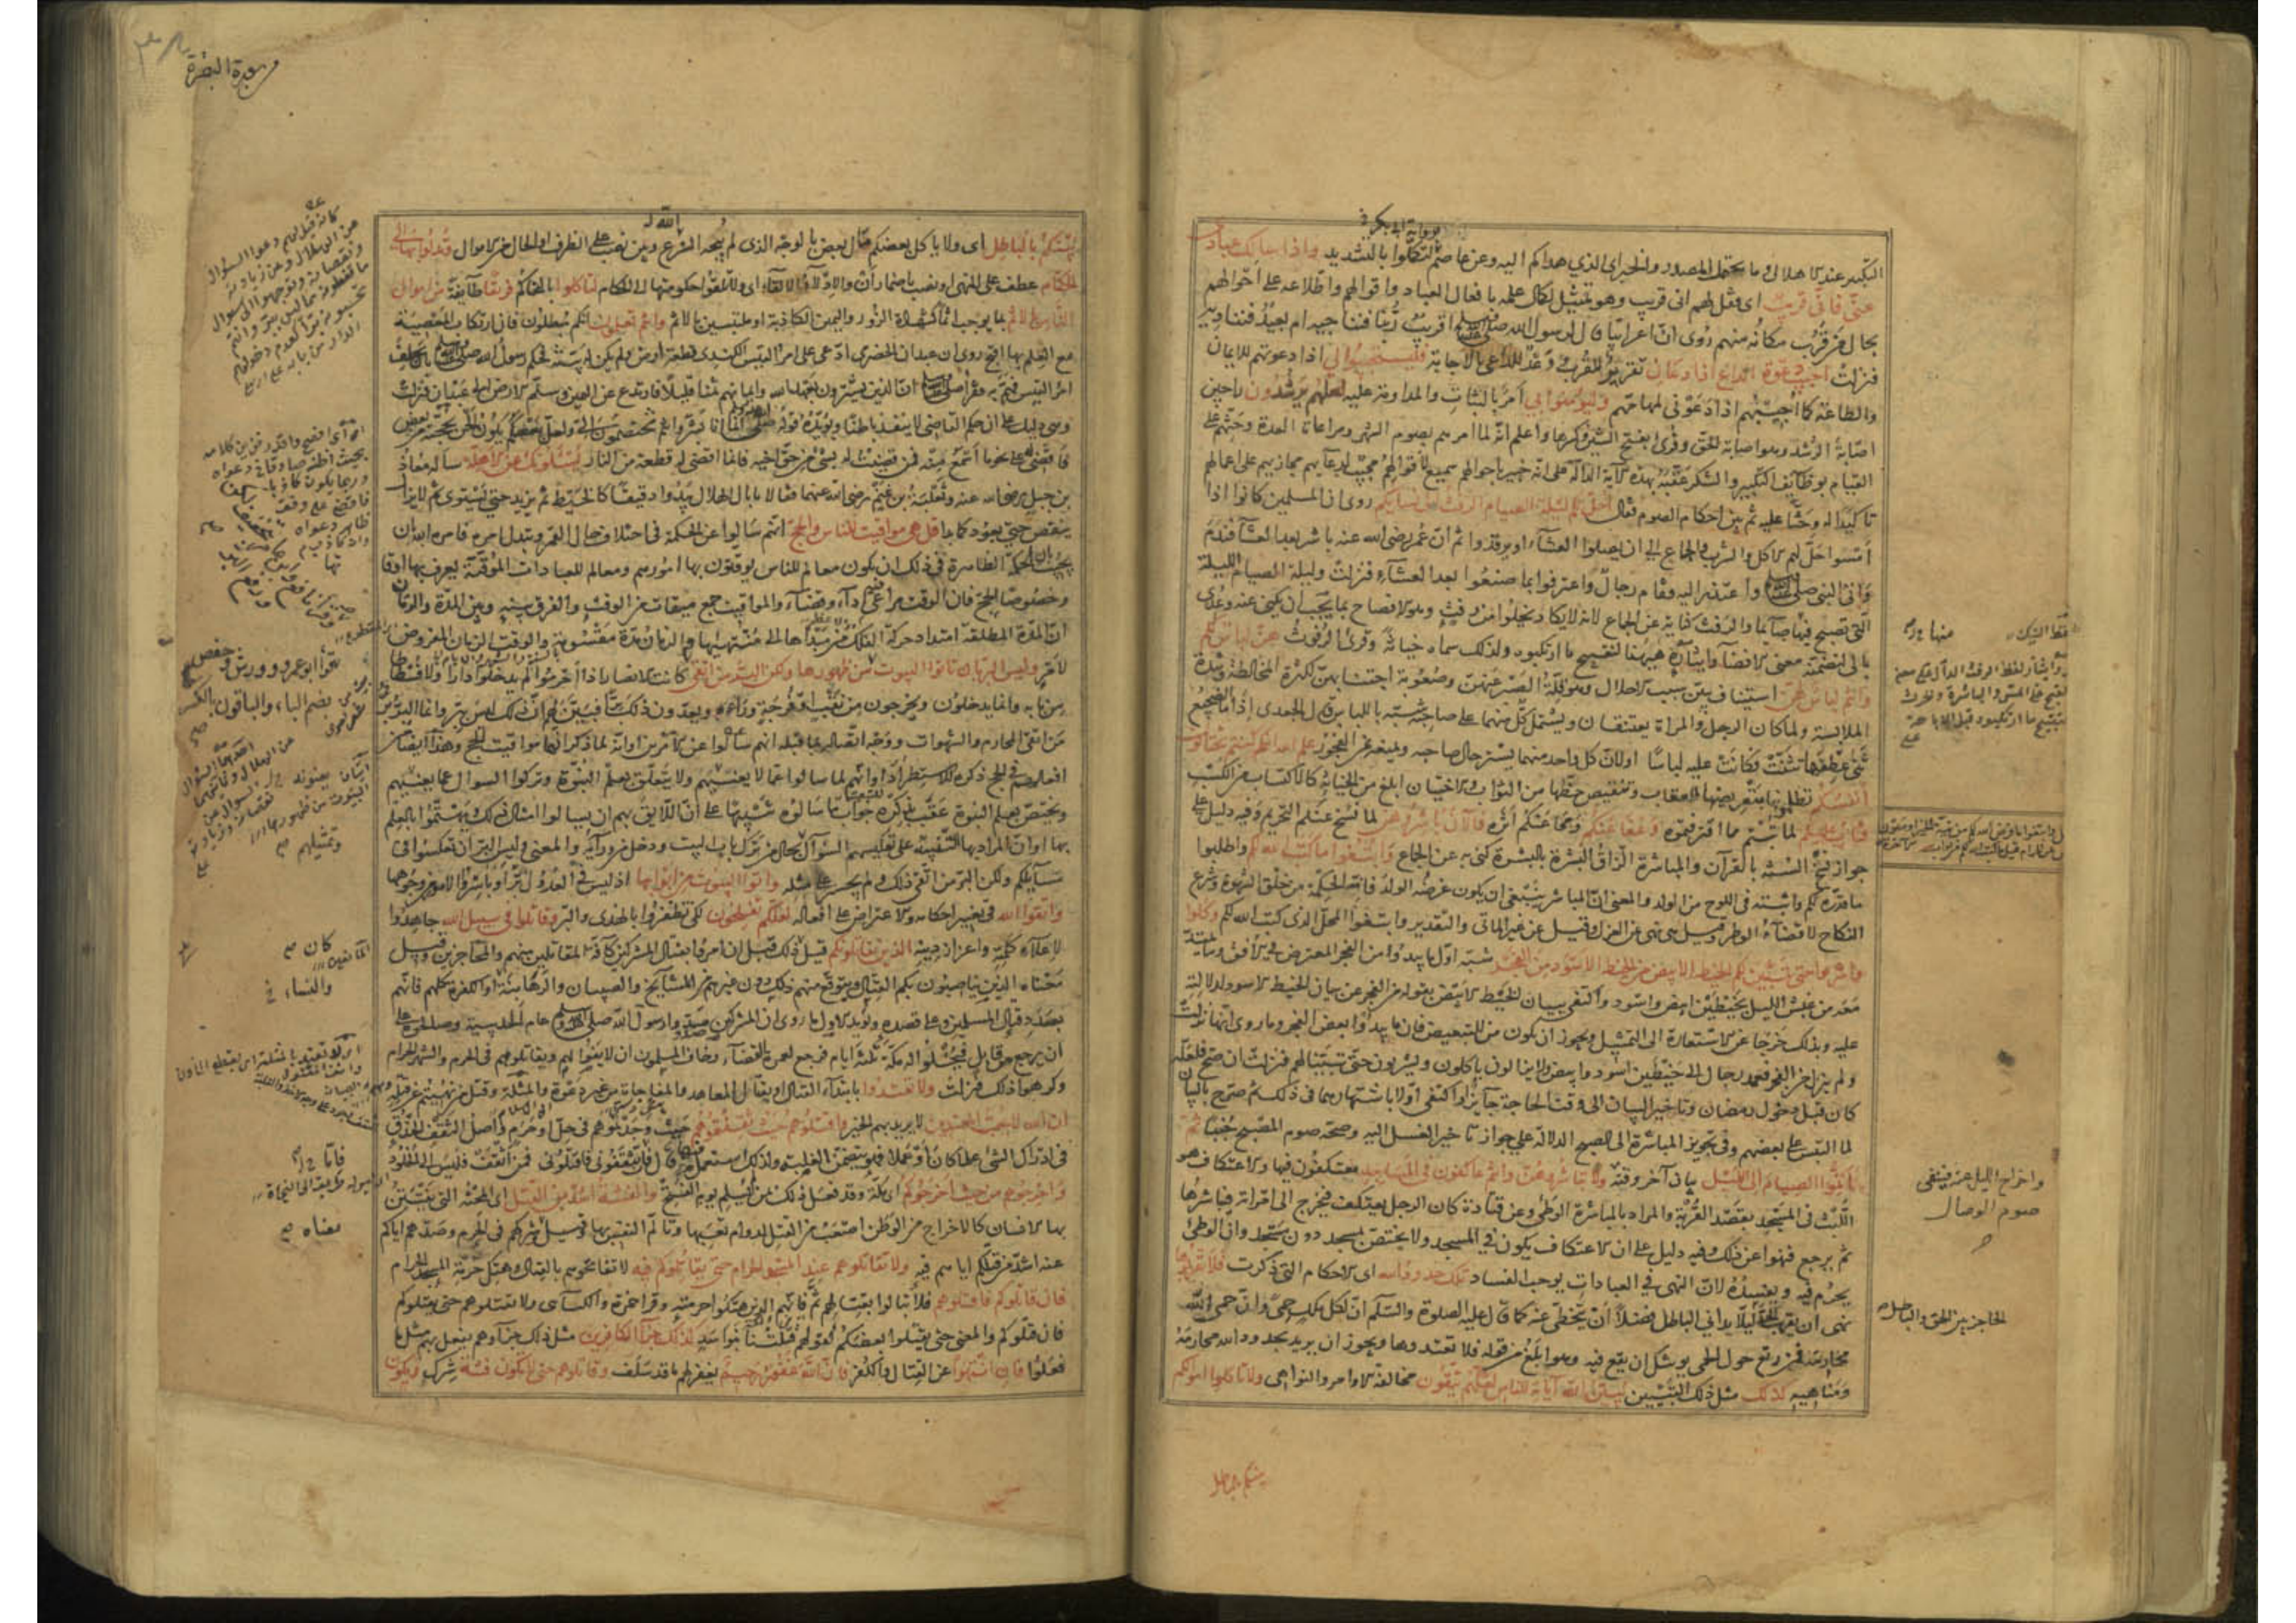 برواية ابي بكر
التكبير عند الاهلال وما يحتمل المصدر والخبر اى الذي هداكم اليه وعن عاصم ولتكملوا بالتشديد واذا سالك عبادى
عنى فانى قريب اى فقل لهم انى قريب وهو تمثيل لكمال علمه بافعال العباد واقوالهم واطلاعه على احوالهم
بحال من قرب مكانه منهم روى ان اعرابيا قال لرسول الله صلى الله عليه وسلم اقريب ربنا فنناجيه ام بعيد فنناديه
فنزلت اجيب دعوة الداع اذا دعان تقرير للقرب ووعد للداعى بالاجابة فليستجيبوا لى اذا دعوتهم للايمان
والطاعة كما اجيبهم اذا دعونى لمهامهم وليؤمنوا بى امر بالثبات والمداومة عليه لعلهم يرشدون راجين
اصابة الرشد وهو اصابة الحق وقرئ بفتح الشين وكسرها واعلم انه لما امرهم بصوم الشهر ومراعاة العدة وحثهم على
القيام بوظائف التكبير والشكر عقبه بهذه الاية الدالة على انه خبير باحوالهم سميع لاقوالهم مجيب لدعائهم مجازيهم على اعمالهم
تاكيدا له وحثا عليه ثم بين احكام الصوم فقال احل لكم ليلة الصيام الرفث الى نسائكم روى ان المسلمين كانوا اذا
امسوا حل لهم الاكل والشرب والجماع الى ان يصلوا العشاء او يرقدوا ثم ان عمر رضى الله عنه باشر بعد العشاء فندم
واتى النبى صلى الله عليه وسلم واعتذر اليه فقام رجال واعترفوا بما صنعوا بعد العشاء فنزلت وليلة الصيام الليلة
التى تصبح فيها صائما والرفث كناية عن الجماع لانه لا يكاد يخلوا من رفث وهو الافصاح بما يجب ان يكنى عنه وعدى
بالى لتضمنه معنى الافضاء وايثاره ههنا لتقبيح ما ارتكبوه ولذلك سماه خيانة وقرئ الرفوث هن لباس لكم
وانتم لباس لهن استيناف يبين سبب الاحلال وهو قلة الصبر عنهن وصعوبة اجتنابهن لكثرة المخالطة وشدة
الملابسة ولما كان الرجل والمراة يعتنقان ويشتمل كل منهما على صاحبه شبه باللباس قال الجعدى اذا ما الضجيع
ثنى عطفها تثنت فكانت عليه لباسا اولان كل واحد منهما يستر حال صاحبه ويمنعه عن الفجور علم الله انكم كنتم تختانون
انفسكم تظلمونها بتعريضها للعقاب وتنقيص حظها من الثواب والاختيان ابلغ من الخيانة كالاكتساب من الكسب
فتاب عليكم لما تبتم مما اقترفتموه وعفا عنكم ومحا عنكم اثره فالآن باشروهن لما نسخ عنكم التحريم وفيه دليل على
جواز نسخ السنة بالقرآن والمباشرة الزاق البشرة بالبشرة كنى به عن الجماع وابتغوا ما كتب الله لكم واطلبوا
ما قدره لكم واثبته فى اللوح من الولد والمعنى ان المباشر ينبغى ان يكون غرضه الولد فانه الحكمة من خلق الشهوة وشرع
النكاح لا قضاء الوطر وقيل نهى عن العزل وقيل عن غير الماتى والتقدير وابتغوا المحل الذى كتب الله لكم وكلوا
واشربوا حتى يتبين لكم الخيط الابيض من الخيط الاسود من الفجر شبه اول ما يبدوا من الفجر المعترض فى الافق وما يمتد
معه من غبش الليل بخيطين ابيض واسود واكتفى ببيان الخيط الابيض بقوله من الفجر عن بيان الخيط الاسود لدلالته
عليه وبذلك خرجا عن الاستعارة الى التمثيل ويجوز ان يكون من للتبعيض فان ما يبدوا بعض الفجر وما روى انها نزلت
ولم ينزل من الفجر فعمد رجال الى خيطين اسود وابيض ولا يزالون ياكلون ويشربون حتى يتبينا لهم فنزلت ان صح فلعله
كان قبل دخول رمضان وتاخير البيان الى وقت الحاجة جايز او اكتفى اولا باشتهارهما فى ذلك ثم صرح بالبيان
لما التبس على بعضهم وفى تجويز المباشرة الى الصبح الدلالة على جواز تاخير الغسل اليه وصحة صوم المصبح جنبا ثم
اتموا الصيام الى الليل بيان آخر وقته ولا تباشروهن وانتم عاكفون فى المساجد معتكفون فيها والاعتكاف هو
اللبث فى المسجد بقصد القربة والمراد بالمباشرة الوطئ وعن قتادة كان الرجل يعتكف فيخرج الى امراته فيباشرها
ثم يرجع فنهوا عن ذلك وفيه دليل على ان الاعتكاف يكون فى المسجد ولا يختص بمسجد دون مسجد وان الوطئ
يحرم فيه ويفسده لان النهى فى العبادات يوجب الفساد تلك حدود الله اى الاحكام التى ذكرت فلا تقربوها
نهى ان يقرب الحد ليلا يدانى الباطل فضلا ان يتخطى عنه كما قال عليه الصلوة والسلام ان لكل ملك حمى وان حمى الله
محارمه فمن رتع حول الحمى يوشك ان يقع فيه وهو ابلغ من قوله فلا تعتدوها ويجوز ان يريد بحدود الله محارمه
ومناهيه كذلك مثل ذلك التبيين يبين الله آياته للناس لعلهم يتقون مخالفة الاوامر والنواهى ولا تاكلوا اموالكم
بينكم بالباطل
منها
واخراج الليل عنه فينفى
صوم الوصال
الحاجز بين الحق والباطل
سورة البقرة
بينكم بالباطل اى ولا ياكل بعضكم مال بعض بالوجه الذى لم يبحه الشرع وبين نصب على الظرف او الحال من الاموال وتدلوا بها الى
الحكام عطف على المنهى او نصب باضمار ان والادلاء الالقاء اى ولا تلقوا حكومتها الى الحكام لتاكلوا بالتحاكم فريقا طائفة من اموال
الناس بالاثم بما يوجب اثما كشهادة الزور واليمين الكاذبة او ملتبسين بالاثم وانتم تعلمون انكم مبطلون فان ارتكاب المعصية
مع العلم بها اقبح روى ان عبدان الحضرمى ادعى على امرئ القيس الكندى قطعة ارض ولم يكن له بينة فحكم رسول الله صلى الله عليه وسلم بان يحلف
امرؤ القيس فهم به فقرأ صلى الله عليه وسلم ان الذين يشترون بعهد الله وايمانهم ثمنا قليلا فارتدع عن اليمين وسلم الارض الى عبدان فنزلت
وهى دليل على ان حكم القاضى لا ينفذ باطنا ويؤيده قوله عليه السلام انما انا بشر وانتم تختصمون الى ولعل بعضكم يكون الحن بحجته من بعض
فاقضى على نحو ما اسمع منه فمن قضيت له بشئ من حق اخيه فانما اقضى له قطعة من النار يسئلونك عن الاهلة ساله معاذ
بن جبل رضى الله عنه وثعلبة بن غنم رضى الله عنهما فقالا ما بال الهلال يبدوا دقيقا كالخيط ثم يزيد حتى يستوى ثم لا يزال
ينقص حتى يعود كما بدا قل هى مواقيت للناس والحج انهم سالوا عن الحكمة فى اختلاف حال القمر وتبدل امره فامره الله ان
يجيب بان الحكمة الظاهرة فى ذلك ان يكون معالم للناس يوقتون بها امورهم ومعالم للعبادات الموقتة يعرف بها اوقاتها
وخصوصا الحج فان الوقت مراعى فيه اداء وقضاء والمواقيت جمع ميقات من الوقت والفرق بينه وبين المدة والزمان
ان المدة المطلقة امتداد حركة الفلك من مبدأها الى منتهاها والزمان مدة مقسومة والوقت الزمان المفروض
لامر وليس البر بان تاتوا البيوت من ظهورها ولكن البر من اتقى كانت الانصار اذا احرموا لم يدخلوا دارا ولا فسطاطا
من بابه وانما يدخلون ويخرجون من نقب او فرجة وراءه ويعدون ذلك برا فبين لهم ان ذلك ليس ببر وانما البر بر
من اتقى المحارم والشهوات ووجه اتصاله بما قبله انهم سالوا عن الامرين او انه لما ذكر انها مواقيت الحج وهذا ايضا من
افعالهم فى الحج ذكره للاستطراد او انهم لما سالوا عما لا يعنيهم ولا يتعلق بعلم النبوة وتركوا السوال عما يعنيهم
ويختص بعلم النبوة عقب بذكره جواب ما سالوه تنبيها على ان اللايق بهم ان يسالوا امثال ذلك ويهتموا بالعلم
بها او ان المراد بها التنبيه على تعكيسهم السؤال بحال من ترك باب البيت ودخل من ورائه والمعنى وليس البر ان تعكسوا فى
مسايلكم ولكن البر من اتقى ذلك ولم يجسر على مثله واتوا البيوت من ابوابها اذ ليس فى العدول بر او باشروا الامور من وجوهها
واتقوا الله فى تغيير احكامه والاعتراض على افعاله لعلكم تفلحون لكى تظفروا بالهدى والبر وقاتلوا فى سبيل الله جاهدوا
لاعلاء كلمته واعزاز دينه الذين يقاتلونكم قيل ذلك قبل ان امروا بقتال المشركين كافة المقاتلين منهم والمحاجزين وقيل
معناه الذين يناصبون بكم القتال ويتوقع منهم ذلك دون غيرهم من المشايخ والصبيان والرهابنة او الكفرة كلهم فانهم
بصدد قتال المسلمين وعلى قصده ويؤيد الاول ما روى ان المشركين صدوا رسول الله صلى الله عليه وسلم عام الحديبية وصالحوه على
ان يرجع من قابل فيخلوا له مكة ثلثة ايام فرجع لعمرة القضاء وخاف المسلمون ان لا يفوا لهم ويقاتلوهم فى الحرم والشهر الحرام
وكرهوا ذلك فنزلت ولا تعتدوا بابتداء القتال او بقتال المعاهد والمفاجاة من غير دعوة والمثلة وقتل من نهيتم عن قتله
ان الله لا يحب المعتدين لا يريد بهم الخير واقتلوهم حيث ثقفتموهم حيث وجدتموهم فى حل او حرم واصل الثقف الحذق
فى ادراك الشئ علما كان او عملا فهو يتضمن الغلبة ولذلك استعمل فيها قال فاما تثقفونى فاقتلونى فمن اثقف فليس الى خلود
واخرجوهم من حيث اخرجوكم اى مكة وقد فعل ذلك بمن لم يسلم يوم الفتح والفتنة اشد من القتل اى المحنة التى يفتتن
بها الانسان كالاخراج من الوطن اصعب من القتل لدوام تعبها وتالم النفس بها وقيل شركهم فى الحرم وصدهم اياكم
عنه اشد من قتلكم اياهم فيه ولا تقاتلوهم عند المسجد الحرام حتى يقاتلوكم فيه لا تفاتحوهم بالقتال وهتك حرمة المسجد الحرام
فان قاتلوكم فاقتلوهم فلا تبالوا بقتالهم ثم فانهم الذين هتكوا حرمته وقرأ حمزة والكسائى ولا تقتلوهم حتى يقتلوكم
فان قتلوكم والمعنى حتى يقتلوا بعضكم كقولهم قتلنا بنوا اسد كذلك جزاء الكافرين مثل ذلك جزاؤهم يفعل بهم مثل ما
فعلوا فان انتهوا عن القتال والكفر فان الله غفور رحيم يغفر لهم ما قد سلف وقاتلوهم حتى لا تكون فتنة شرك ويكون
كان
والنساء
معناه